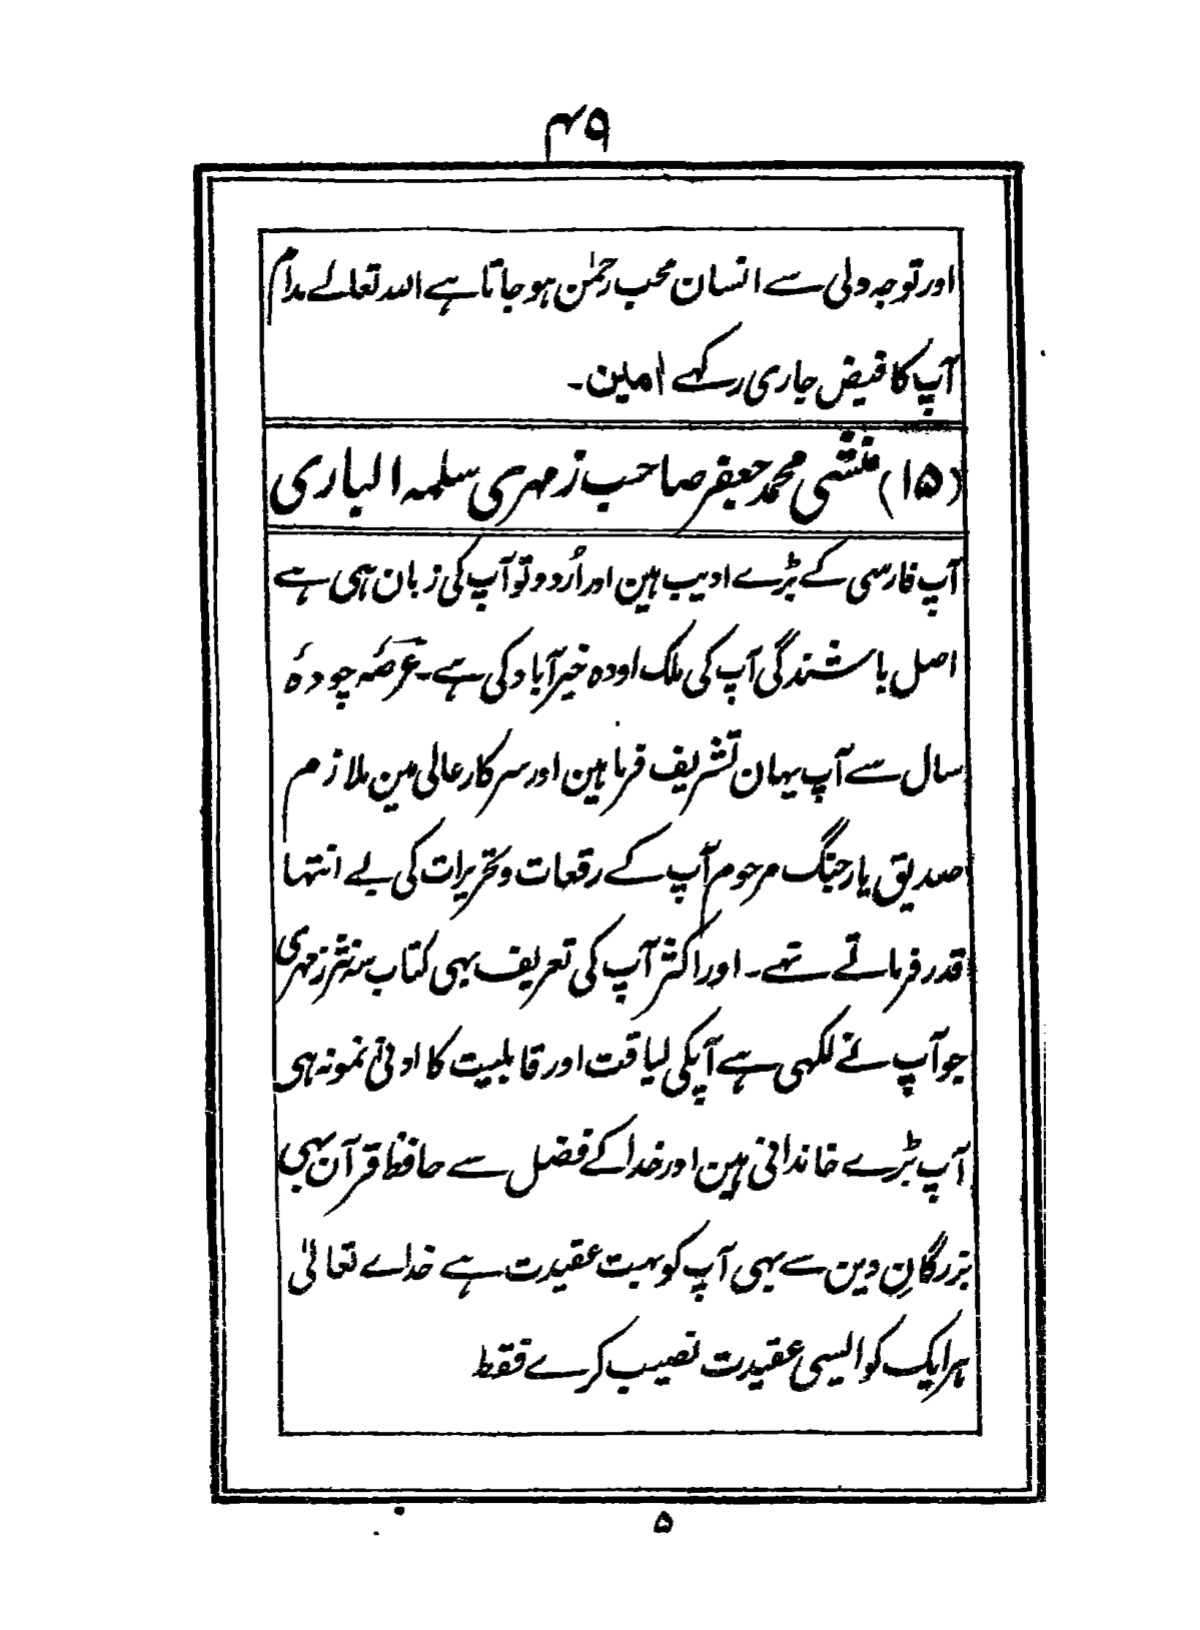 ۴۹
اور توجہ دلی سے انسان محب رحمٰن ہو جاتا ہے اللہ تعالے مدام
آپ کا فیض جاری رکہے امین۔
(۱۵) منشی محمد جعفر صاحب زمہری سلمہ الباری
آپ فارسی کے بڑے ادیب ہین اور اُردو تو آپ کی زبان ہی ہے
اصل باشندگی آپ کی ملک اودہ خیرآباد کی ہے۔ عرصہٴ چودہٴ
سال سے آپ یہان تشریف فرما ہین اور سرکار عالی مین ملازم
صدیق یار جنگ مرحوم آپ کے رقعات و تحریرات کی بے انتہا
قدر فرماتے تہے۔ اور اکثر آپ کی تعریف بہی کتاب سہ نثر زمہری
جو آپ نے لکہی ہے آپکی لیاقت اور قابلیت کا ادنیٰ نمونہ ہی
آپ بڑے خاندانی ہین اور خدا کے فضل سے حافظ قرآن بہی
بزرگانِ دین سے بہی آپ کو بہت عقیدت ہے خداے تعالیٰ
ہر ایک کو ایسی عقیدت نصیب کرے فقط
۵